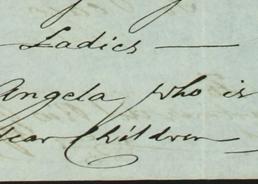 Ladies —
Angela who is
dear Children —